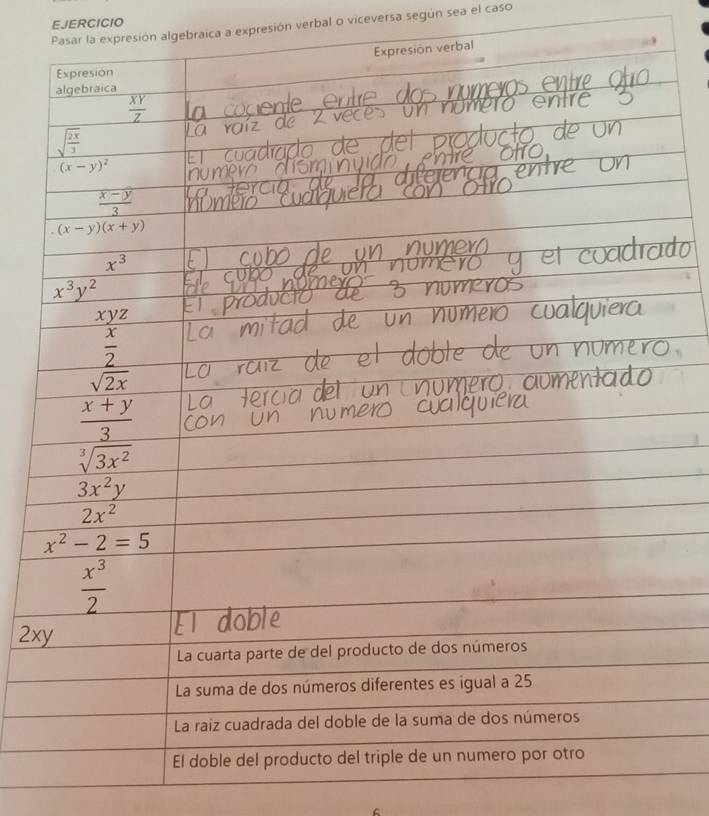 EJERCICIO
Pasar la expresión algebraica a expresión verbal o viceversa según sea el caso
Expresión algebraica
Expresión verbal
XY/Z La cociente entre dos numeros entre otro
√(2x/3) La raiz de 2 veces un numero entre 3
(x − y)² El cuadrado de del producto de un numero disminuido entre otro
(x − y)/3 La tercia de la diferencia entre un numero cualquiera con otro
(x − y)(x + y)
x³ El cubo de un numero
x³y² El cubo de un numero y el cuadrado de un numero
xyz El producto de 3 numeros
x/2 La mitad de un numero cualquiera
√2x La raiz de el doble de un numero.
(x + y)/3 La tercia del un numero aumentado con un numero cualquiera
∛3x²
3x²y
2x²
x² − 2 = 5
x³/2
2xy El doble
La cuarta parte de del producto de dos números
La suma de dos números diferentes es igual a 25
La raiz cuadrada del doble de la suma de dos números
El doble del producto del triple de un numero por otro
6